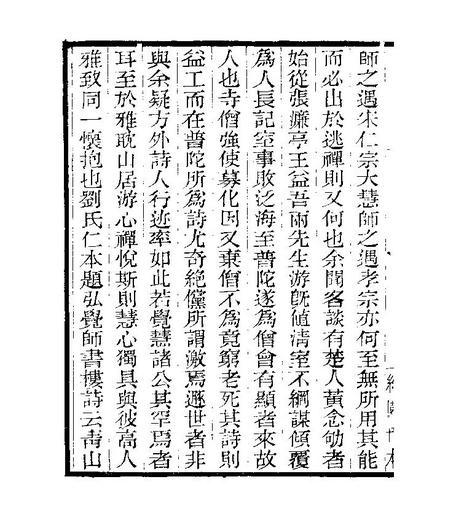 師之遇宋仁宗大慧師之遇孝宗亦何至無所用其能
而必出於逃禪則又何也余聞客談有楚人黃念劬者
始從張濂亭王益吾兩先生游旣値淸室不綱謀傾覆
爲人長記室事敗泛海至普陀遂爲僧會有顯者來故
人也寺僧強使募化因又棄僧不爲竟窮老死其詩則
益工而在普陀所爲詩尤奇絕儻所謂激焉遯世者非
與余疑方外詩人行迹率如此若覺慧諸公其罕焉者
耳至於雅耽山居游心禪悅斯則慧心獨具與彼高人
雅致同一懷抱也劉氏仁本題弘覺師書樓詩云靑山